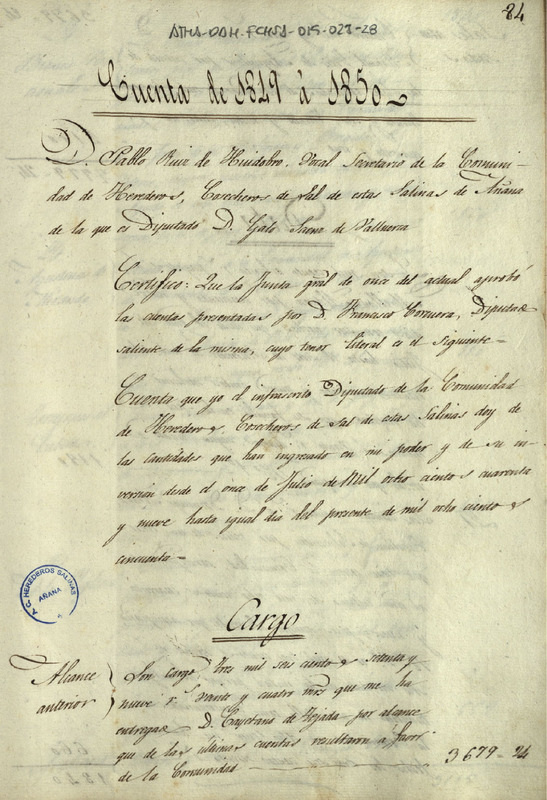 84
ATHA-DAH-FCHSA-015-027-28
Cuenta de 1849 à 1850
D. Pablo Ruiz de Huidobro. Vocal Secretario de la Comuni-
dad de Herederos, Cosecheros de Sal de estas Salinas de Añana
de la que es Diputado D. Galo Saenz de Valluerca
Certifico: Que la Junta gral de once del actual aprobó
las cuentas presentadas por D. Francisco Corcuera, Diputado
saliente de la misma, cuyo tenor literal es el siguiente=
Cuenta que yo el infrascrito Diputado de la Comunidad
de Herederos Cosecheros de Sal de estas Salinas doy de
las cantidades que han ingresado en mi poder y de su in-
version desde el once de Julio de Mil ocho cientos cuarenta
y nueve hasta igual dia del presente de mil ocho cientos
cincuenta=
A. C. HEREDEROS SALINAS
AÑANA
Cargo
Alcance
anterior
Son cargo tres mil seis cientos setenta y
nueve r.s veinte y cuatro mrs que me ha
entregado D. Cayetano de Tejada por alcance
que de las ultimas cuentas resultaron a favor
de la Comunidad
3679-24